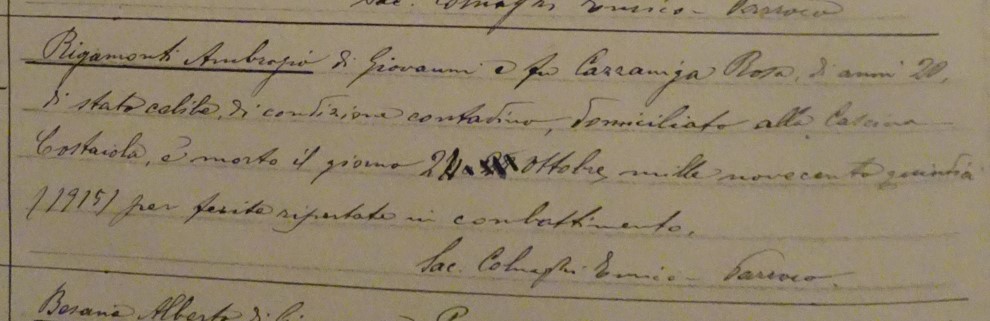 Sac. Colnaghi Enrico - Parroco
Rigamonti Ambrogio di Giovanni e fu Cazzaniga Rosa, di anni 20,
di stato celibe, di condizione contadino, domiciliato alla Cascina
Costaiola, è morto il giorno 24 Ottobre mille novecento quindici
(1915) per ferite riportate in combattimento.
Sac. Colnaghi Enrico - Parroco
Besana Alberto di